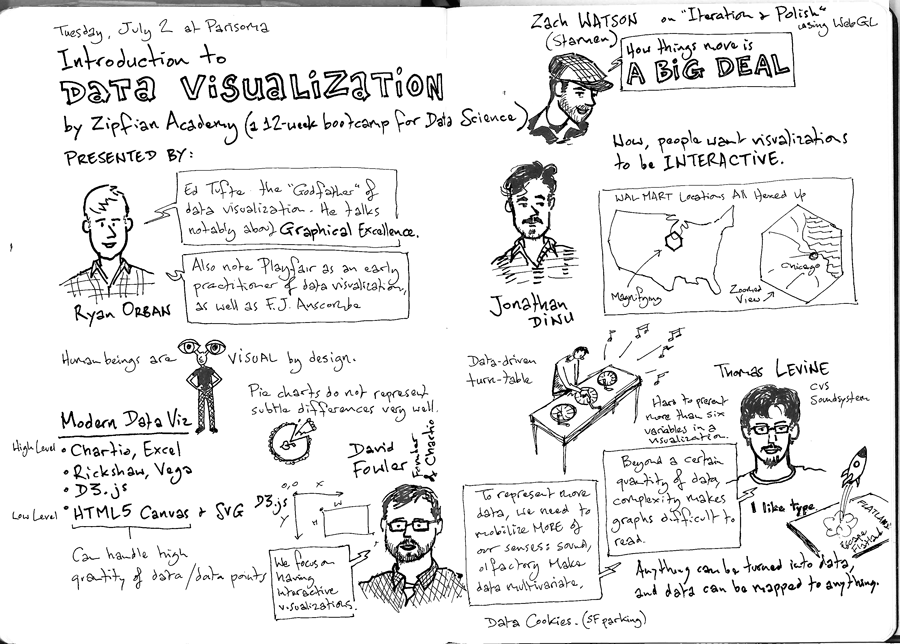 Tuesday, July 2 at Parisoma
Introduction to
DATA VISUALIZATION
by Zipfian Academy (a 12-week bootcamp for Data Science)
PRESENTED BY:
Ed Tufte the "Godfather" of
data visualization. He talks
notably about Graphical Excellence.
Also note Playfair as an early
practitioner of data visualization,
as well as F.J. Anscombe
Ryan ORBAN
Human beings are VISUAL by design.
Pie charts do not represent
subtle differences very well.
Modern Data Viz
High Level • Chartio, Excel
• Rickshaw, Vega
• D3.js
Low Level • HTML5 Canvas & SVG
Can handle high
quantity of data/data points
David
Fowler
Founder
of Chartio
D3.js
0,0 X
Y
W
H
We focus on
having
interactive
visualizations.
Zach WATSON on "Iteration & Polish"
(Stamen)
using WebGL
How things move is
A BIG DEAL
Now, people want visualizations
to be INTERACTIVE.
Jonathan
DINU
WAL-MART Locations All Hexed Up
Magnifying
Chicago
Zoomed
View
Data-driven
turn-table
Hard to present
more than six
variables in a
visualization.
Thomas LEVINE
CVS
Soundsystem
Beyond a certain
quantity of data,
complexity makes
graphs difficult to
read.
I like type
FLATLAND
Escape
Flatland
To represent more
data, we need to
mobilize MORE of
our senses: sound,
olfactory. Make
data multivariate.
Anything can be turned into data,
and data can be mapped to anything.
Data Cookies. (SF parking)